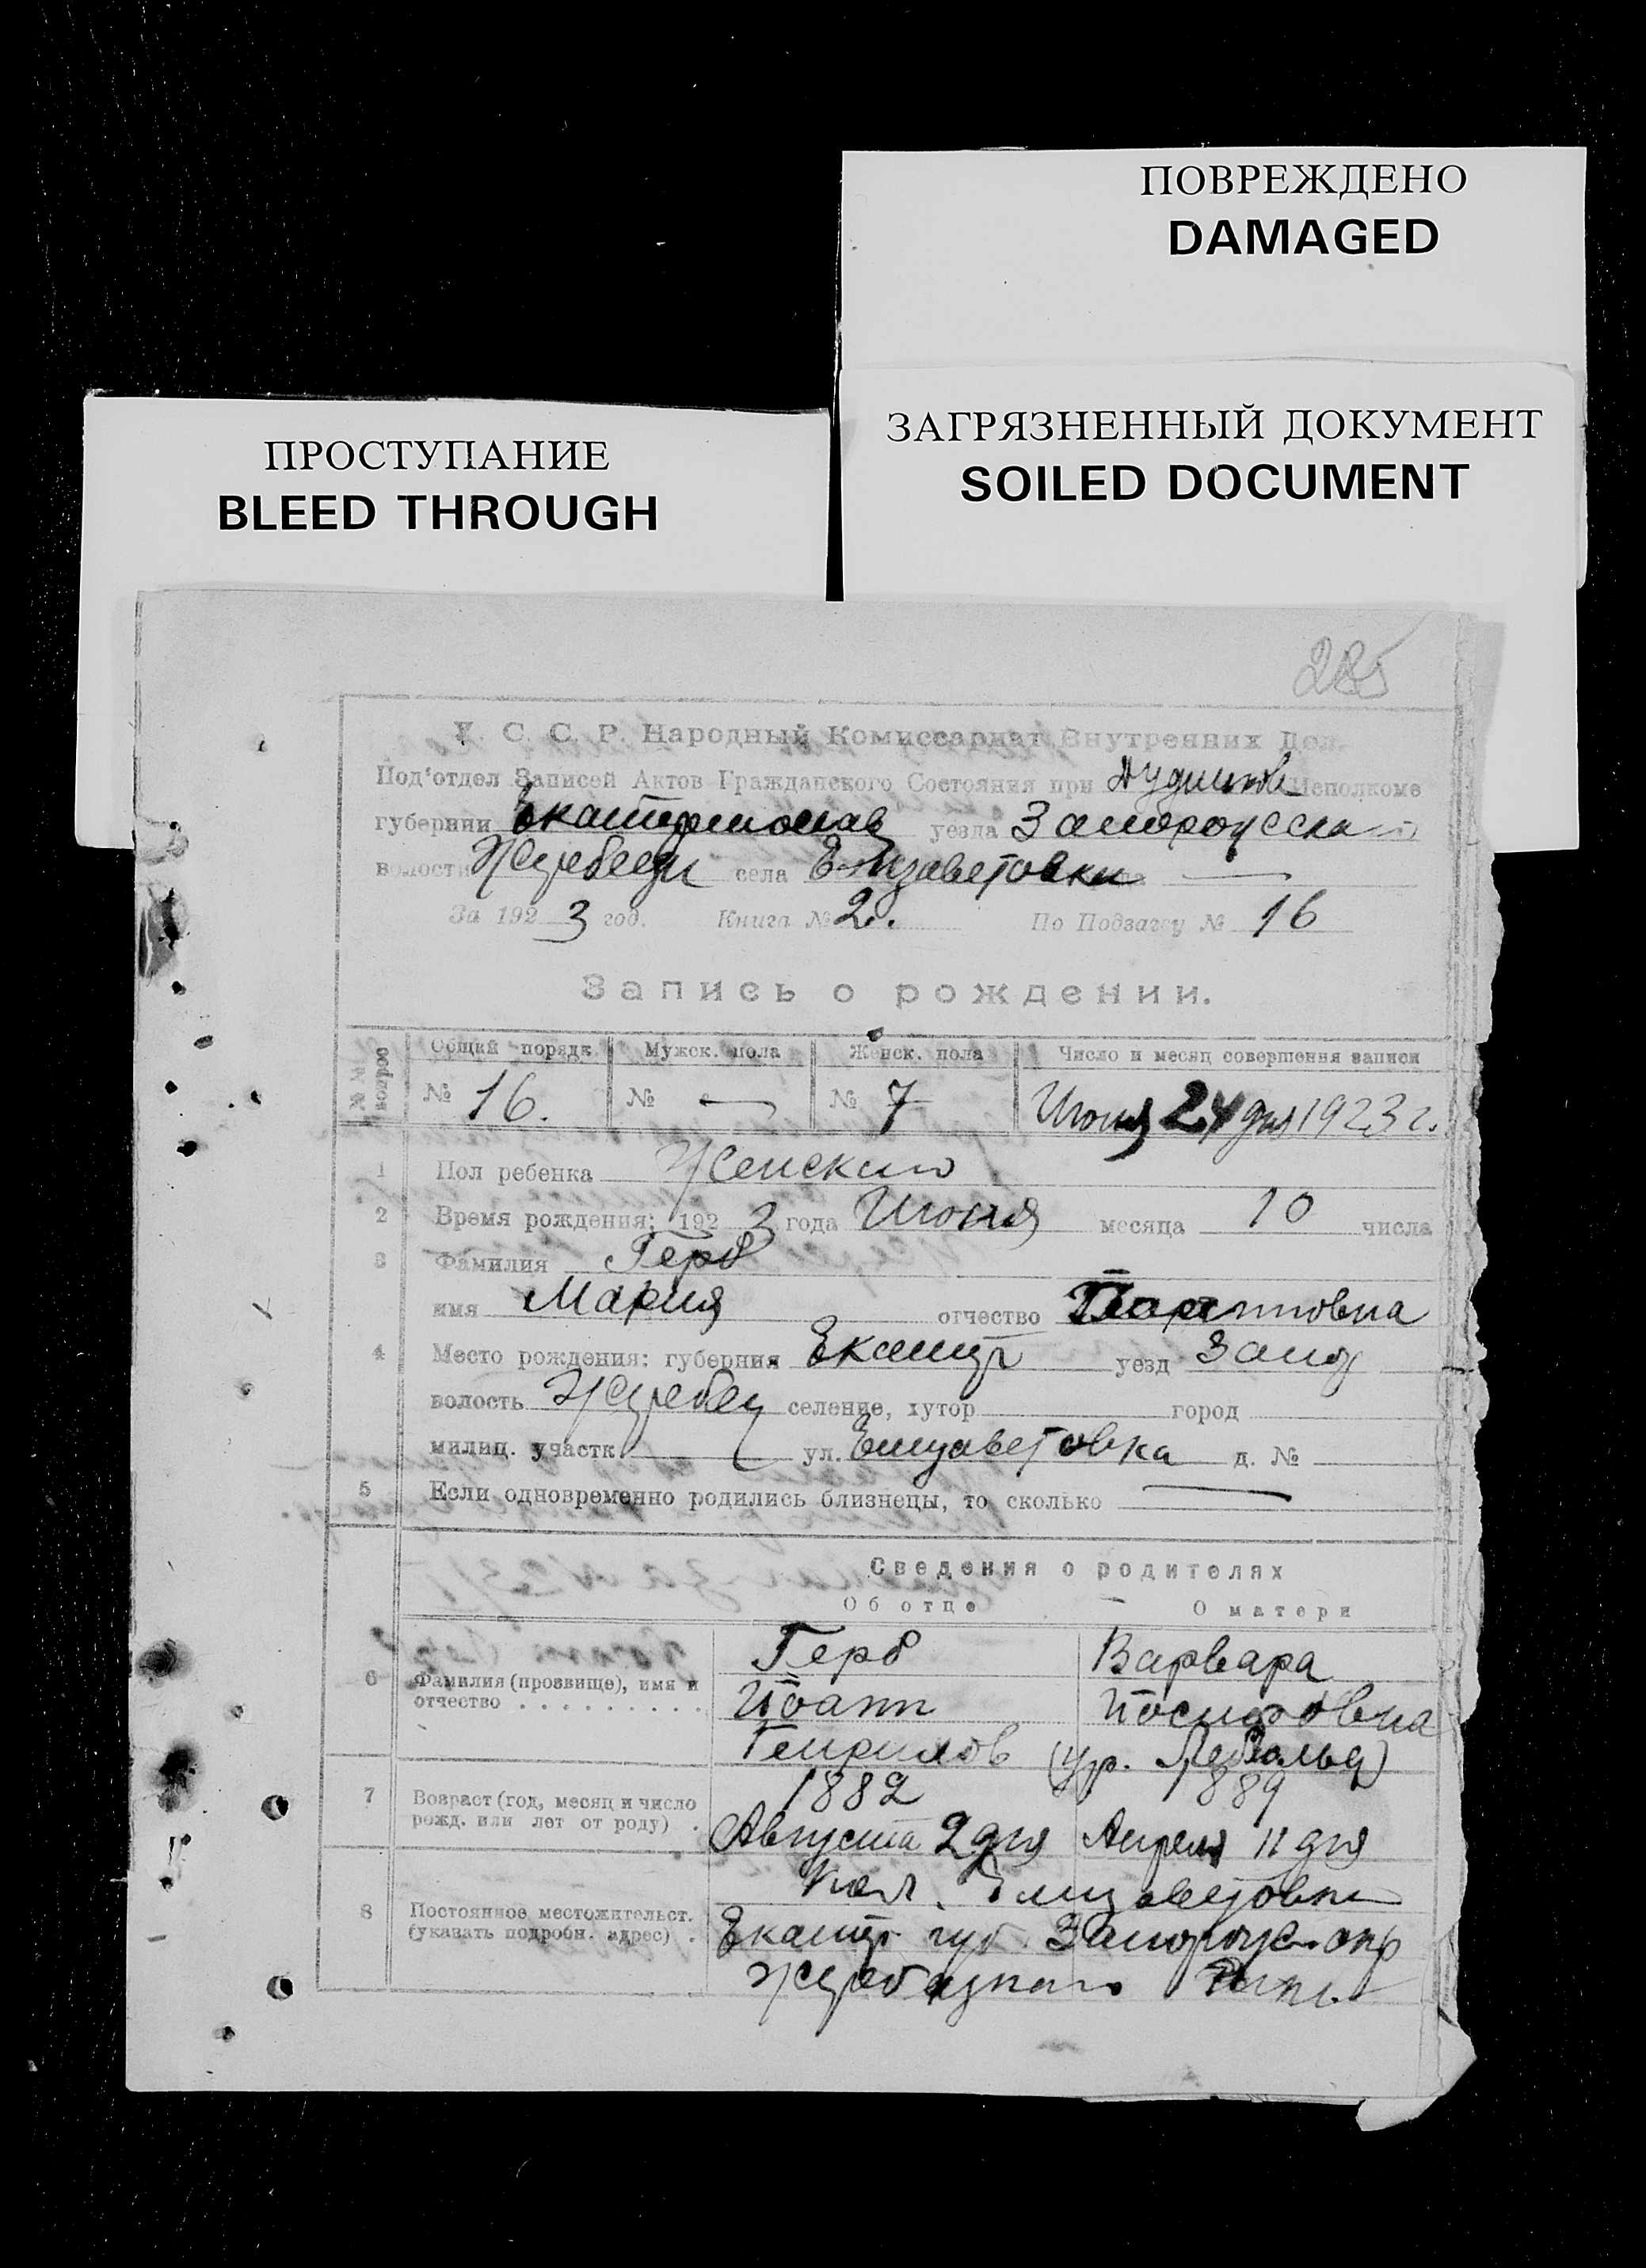 ПОВРЕЖДЕНО
DAMAGED
ЗАГРЯЗНЕННЫЙ ДОКУМЕНТ
SOILED DOCUMENT
ПРОСТУПАНИЕ
BLEED THROUGH
285
У. С. С. Р. Народный Комиссариат Внутренних Дел.
Под'отдел Записей Актов Гражданского Состояния при Исполкоме
губернии Екатеринослав уезда
волости села Елизаветовки
За 1923 год. Книга № 2. По Подзагсу № 16
Запись о рождении.
№№ вопрос
Общий порядк. Мужск. пола Женск. пола Число и месяц совершения записи
№ 16. № — № 7 Июня 24 дня 1923 г.
1 Пол ребенка Женский
2 Время рождения: 1923 года Июня месяца 10 числа
3 Фамилия Герб
имя Мария отчество
4 Место рождения: губерния Екатер уезд Запор
волость Жеребец селение, хутор город
милиц. участк. — ул. Елизаветовка д. №
5 Если одновременно родились близнецы, то сколько —
Сведения о родителях
Об отце О матери
Герб Варвара
6 Фамилия (прозвище), имя и
отчество . . . . . . . . .
Иоанн Иосифовна
(ур.
1882 1889
7 Возраст (год, месяц и число
рожд. или лет от роду) .
Августа 2 дня Апреля 11 дня
Кол. Елизаветовки
8 Постоянное местожительст.
(указать подробн. адрес) .
Екатер. губ. окр